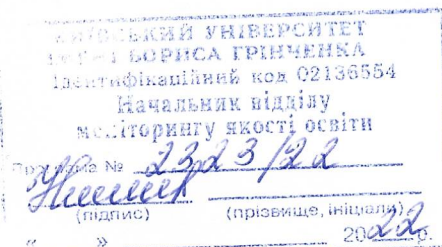 КИЇВСЬКИЙ УНІВЕРСИТЕТ
ІМЕНІ БОРИСА ГРІНЧЕНКА
Ідентифікаційний код 02136554
Начальник відділу
моніторингу якості освіти
Програма № 2323/22
(підпис) (прізвище, ініціали)
“ ” 2022 р.